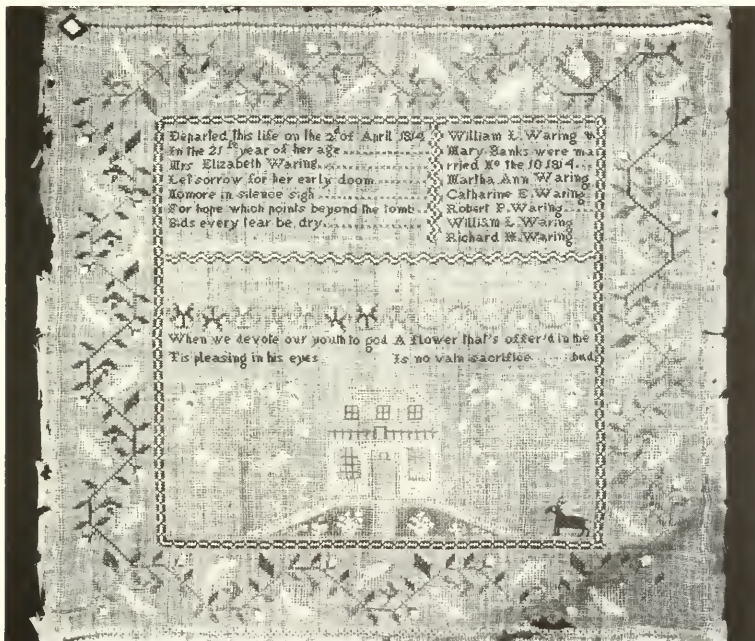 Departed this life on the 2d of April 1814
In the 21st year of her age
Mrs Elizabeth Waring
Let sorrow for her early doom
Nomore in silence sigh
For hope which points beyond the tomb
Bids every tear be dry
William L. Waring
Mary Banks were ma
rried No the 10 1814
Martha Ann Waring
Catharine E. Waring
Robert P. Waring
William L. Waring
Richard H. Waring
When we devote our youth to god A flower that's offer'd in the
Tis pleasing in his eyes Is no vain sacrifice bud